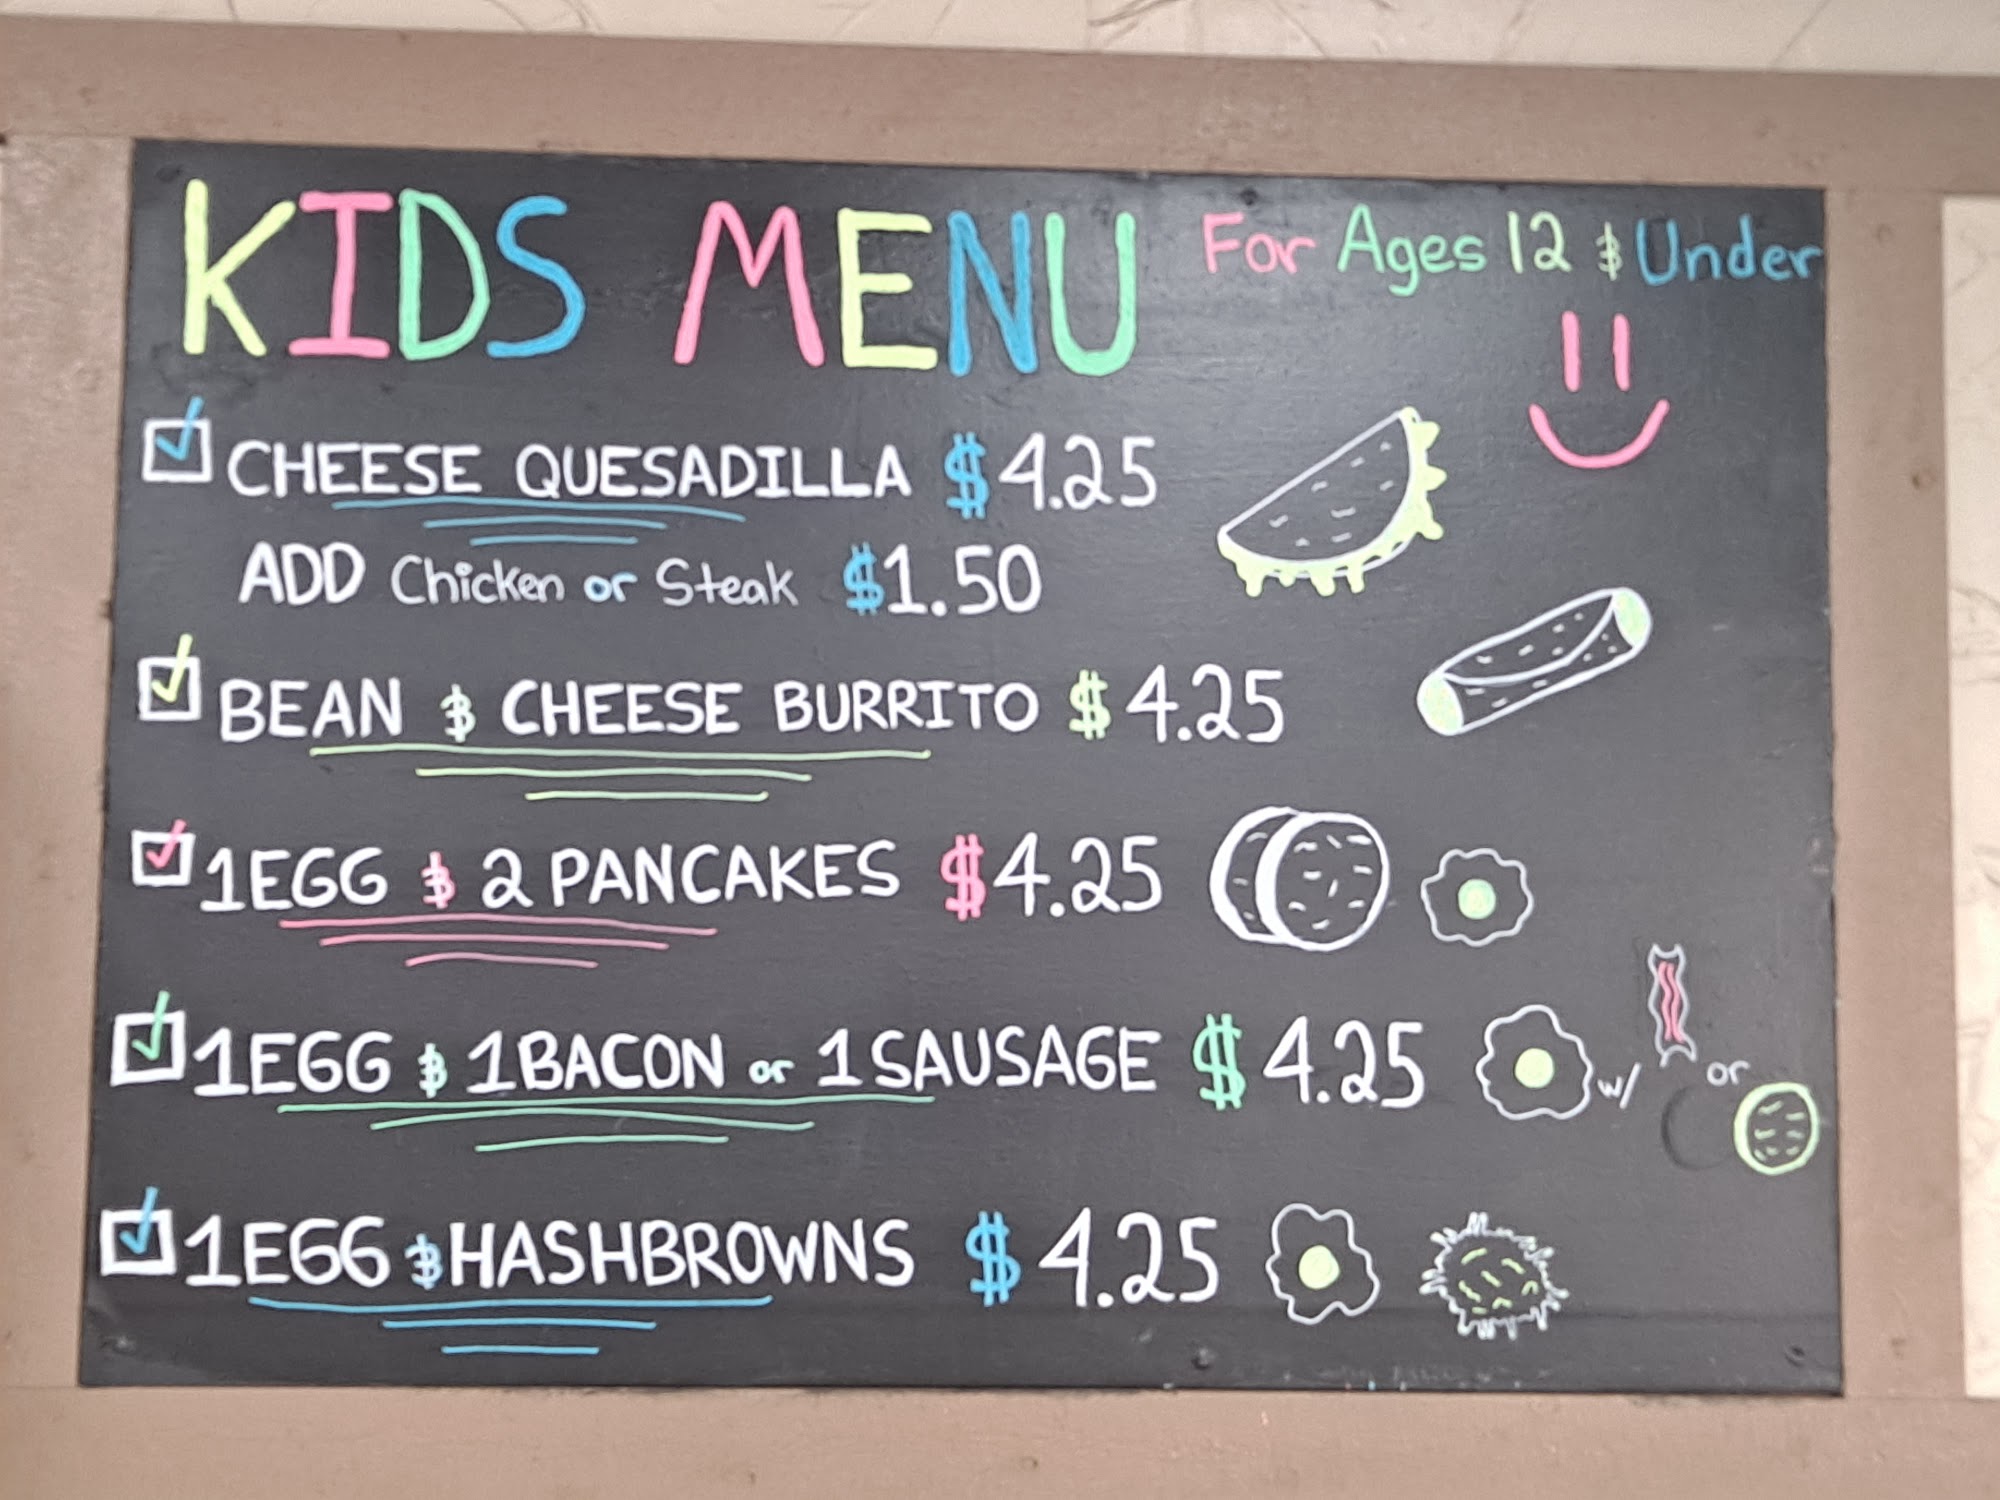 KIDS MENU For Ages 12 & Under
CHEESE QUESADILLA $4.25
ADD Chicken or Steak $1.50
BEAN & CHEESE BURRITO $4.25
1 EGG & 2 PANCAKES $4.25
1 EGG & 1 BACON or 1 SAUSAGE $4.25
w/ or
1 EGG & HASHBROWNS $4.25